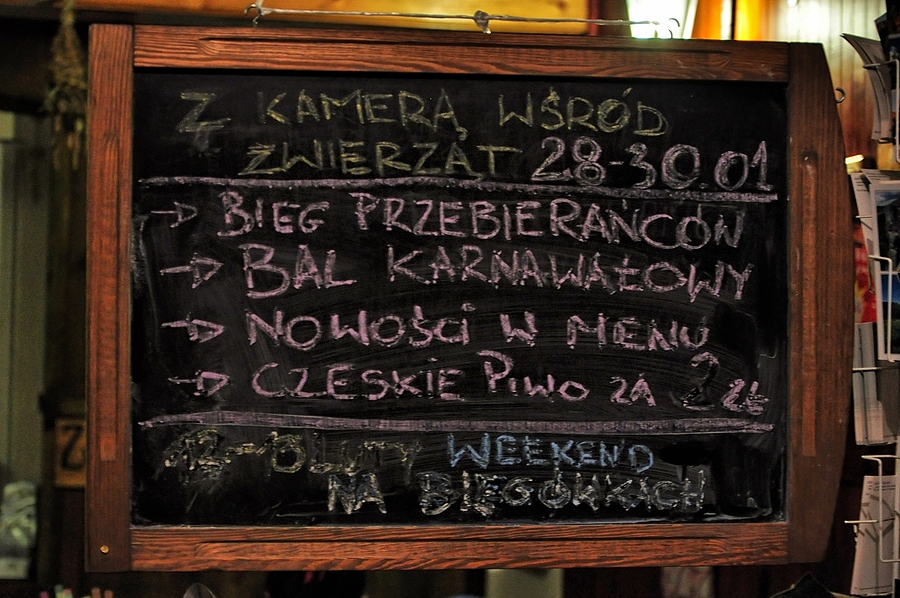 Z KAMERĄ WŚRÓD
ZWIERZĄT 28-30.01
→ BIEG PRZEBIERAŃCÓW
→ BAL KARNAWAŁOWY
→ NOWOŚCI W MENU
→ CZESKIE PIWO ZA 2 ZŁ
LUTY WEEKEND
NA BIEGÓWKACH